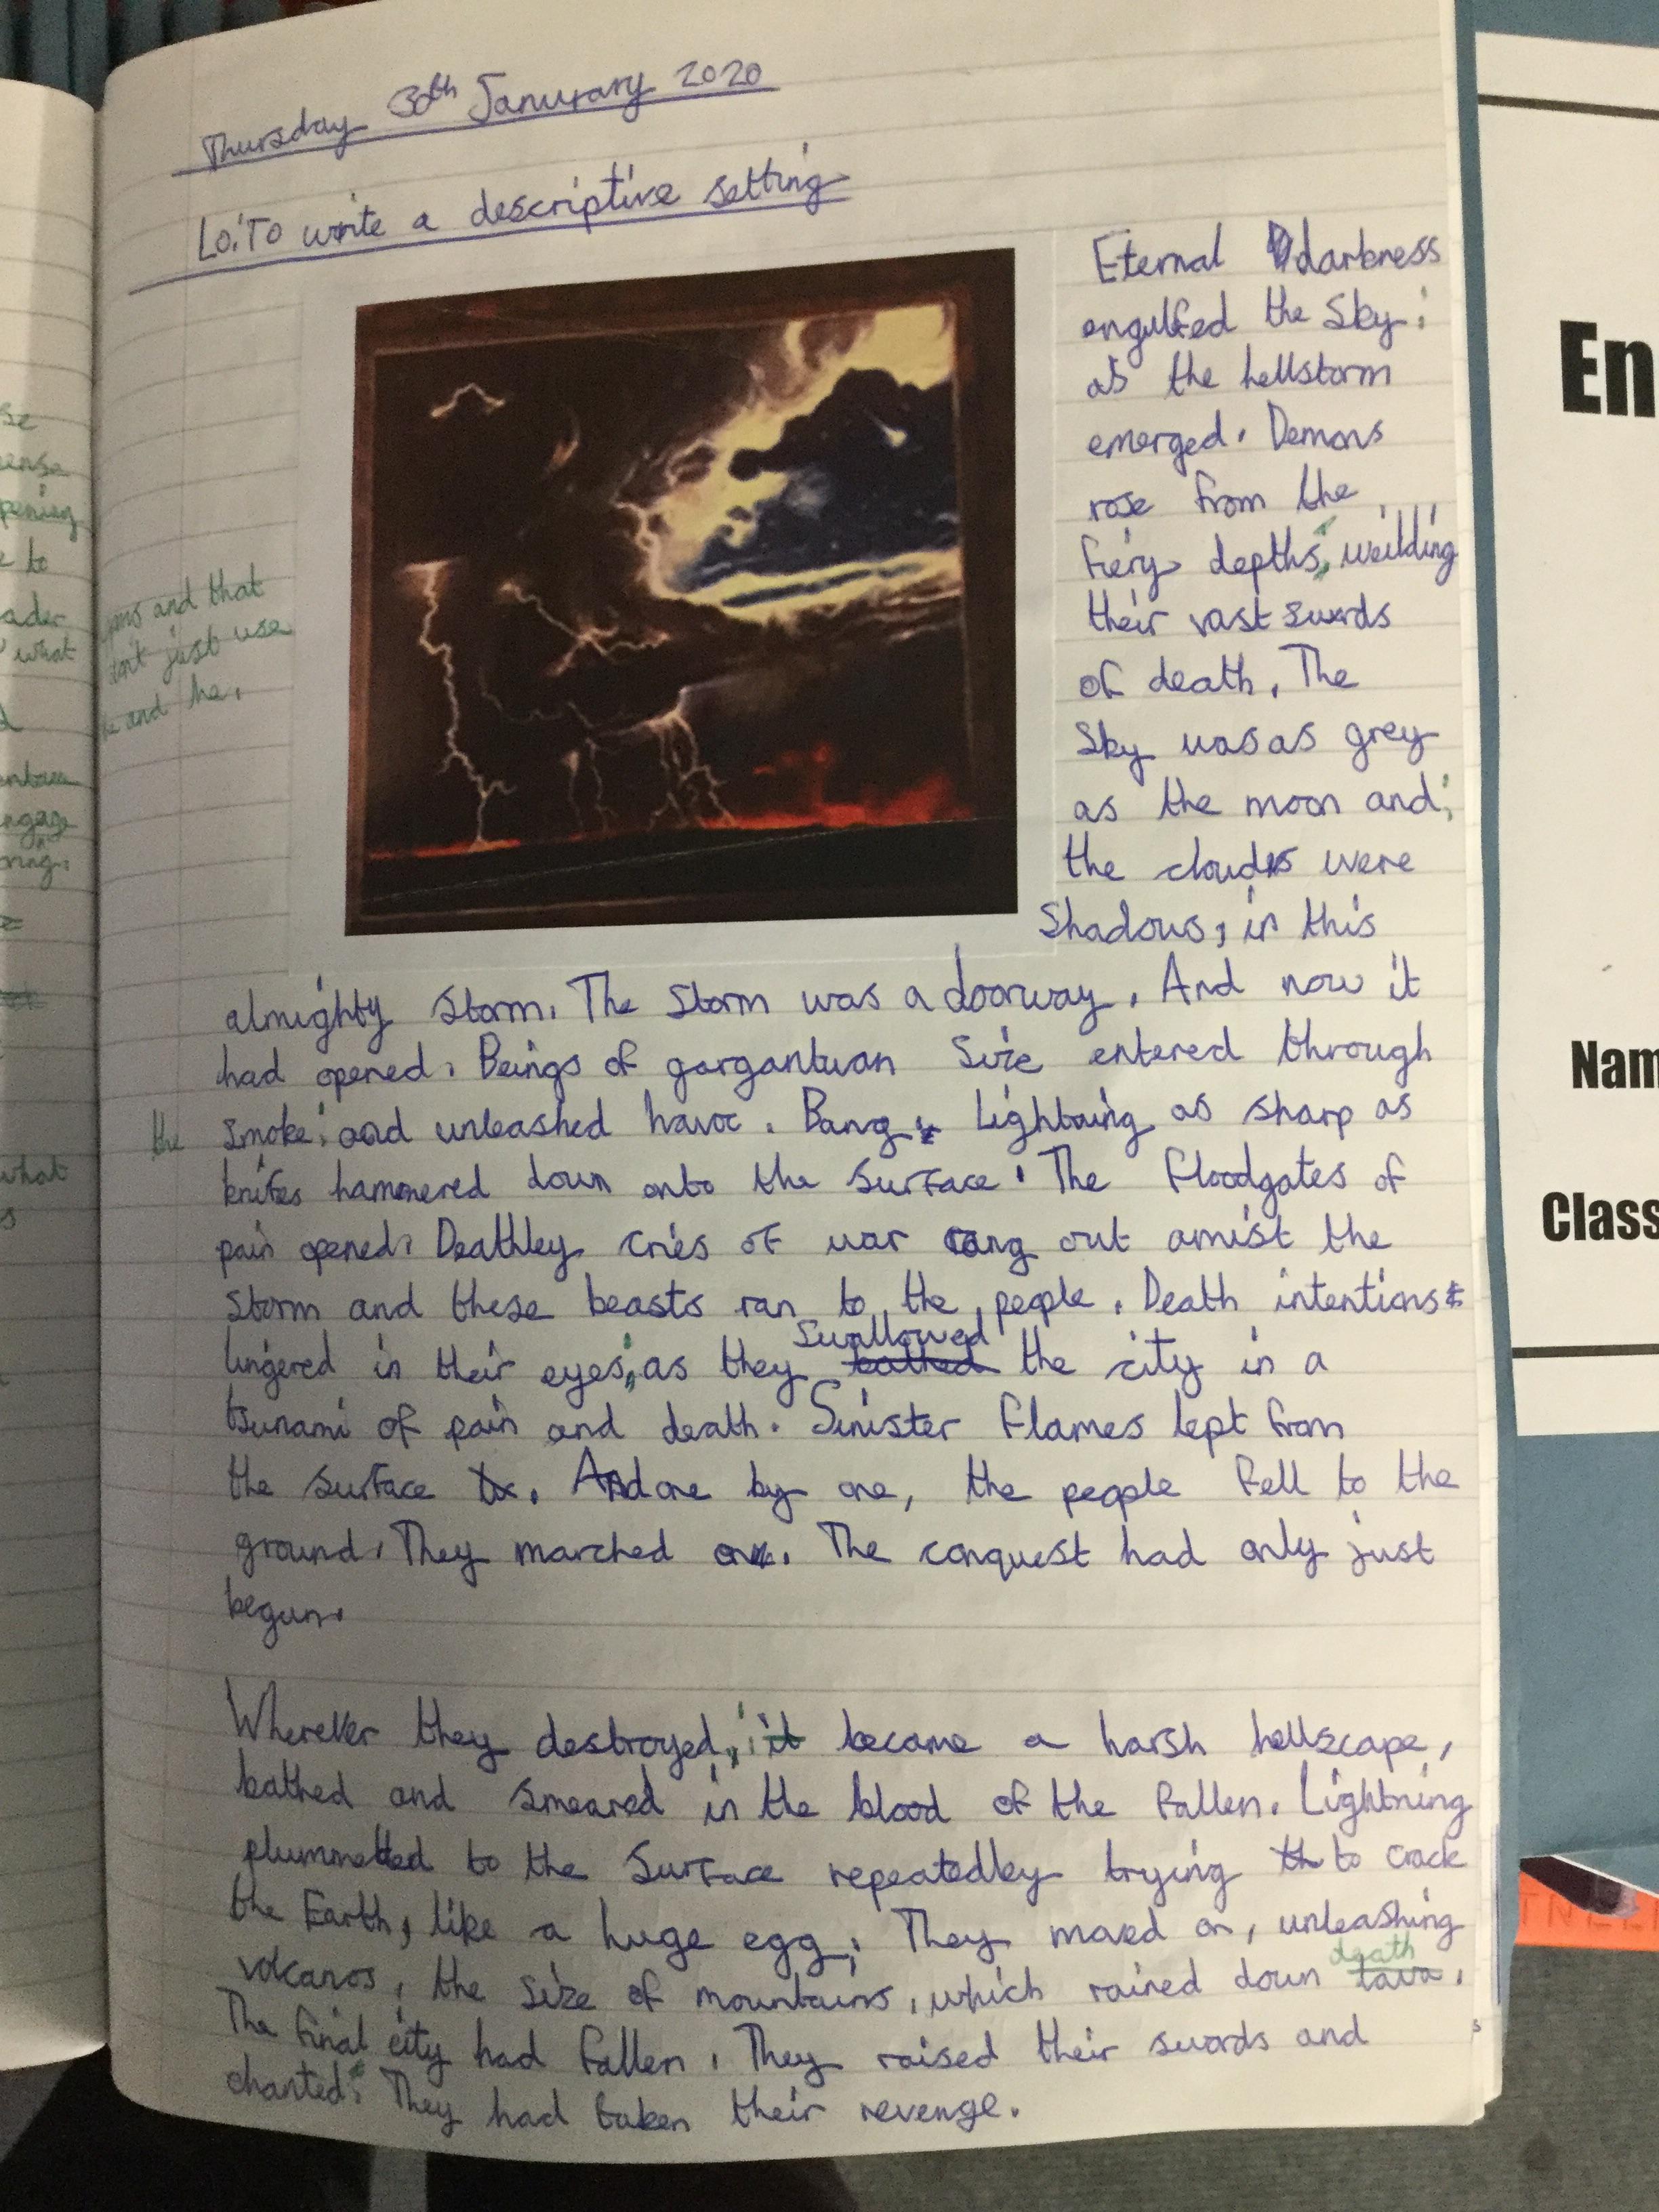 Thursday 30th January 2020
Lo:To write a descriptive setting
Eternal darkness
engulfed the sky;
as the hellstorm
emerged. Demons
rose from the
fiery depths, weilding
their vast swords
of death. The
sky was as grey
as the moon and;
the clouds were
shadows, in this
almighty storm. The storm was a doorway. And now it
had opened. Beings of gargantuan size entered through
the smoke: and unleashed havoc. Bang. Lightning as sharp as
knifes hammered down onto the surface. The floodgates of
pain opened. Deathley cries of war rang out amist the
storm and these beasts ran to the people. Death intentions
lingered in their eyes, as they swallowed the city in a
tsunami of pain and death. Sinister flames lept from
the surface. And one by one, the people fell to the
ground. They marched on. The conquest had only just
begun.
Wherever they destroyed, it became a harsh hellscape,
bathed and smeared in the blood of the fallen. Lightning
plummetted to the surface repeatedley trying to crack
the Earth, like a huge egg; They moved on, unleashing
volcanos, the size of mountains, which rained down death lava.
The final city had fallen. They raised their swords and
chanted: They had taken their revenge.
and that
just use
and he.
what
to
what
En
Nam
Class